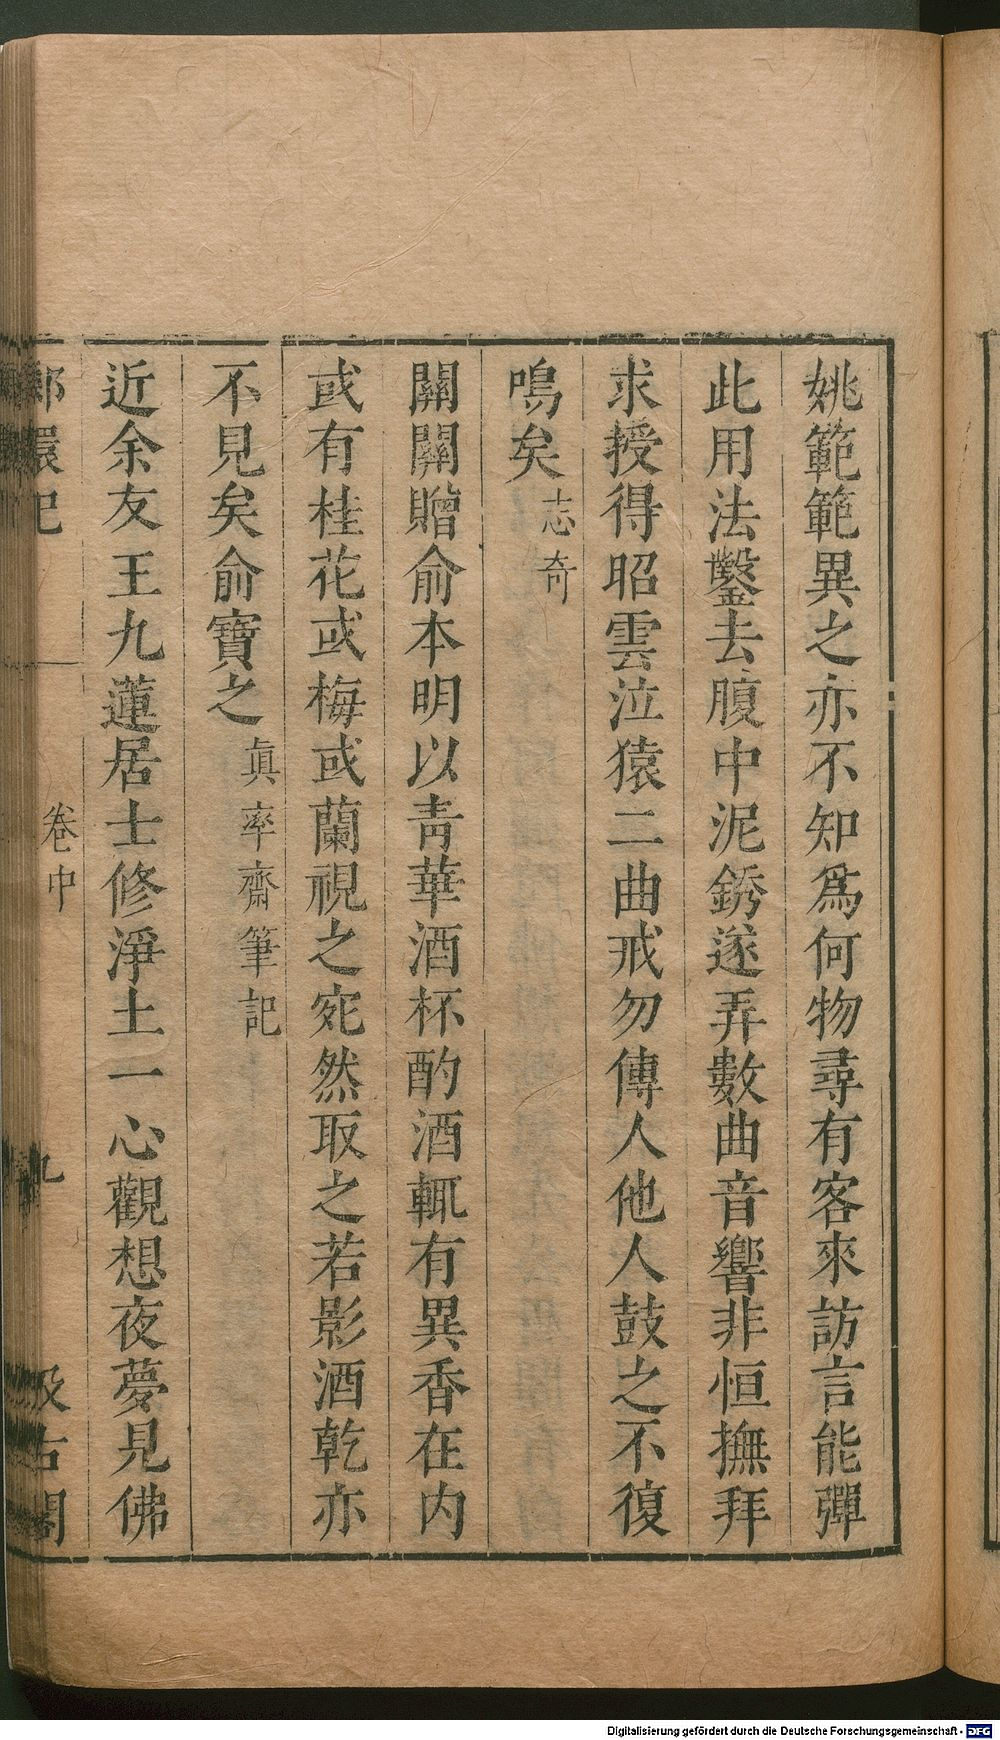 姚範範異之亦不知爲何物尋有客來訪言能彈
此用法鑿去腹中泥銹遂弄數曲音響非恒撫拜
求授得昭雲泣猿二曲戒勿傳人他人鼓之不復
鳴矣志奇
關關贈俞本明以靑華酒杯酌酒輒有異香在內
或有桂花或梅或蘭視之宛然取之若影酒乾亦
不見矣俞寶之眞率齋筆記
近余友王九蓮居士修淨土一心觀想夜夢見佛
卷中
九
汲古閣
Digitalisierung gefördert durch die Deutsche Forschungsgemeinschaft - DFG